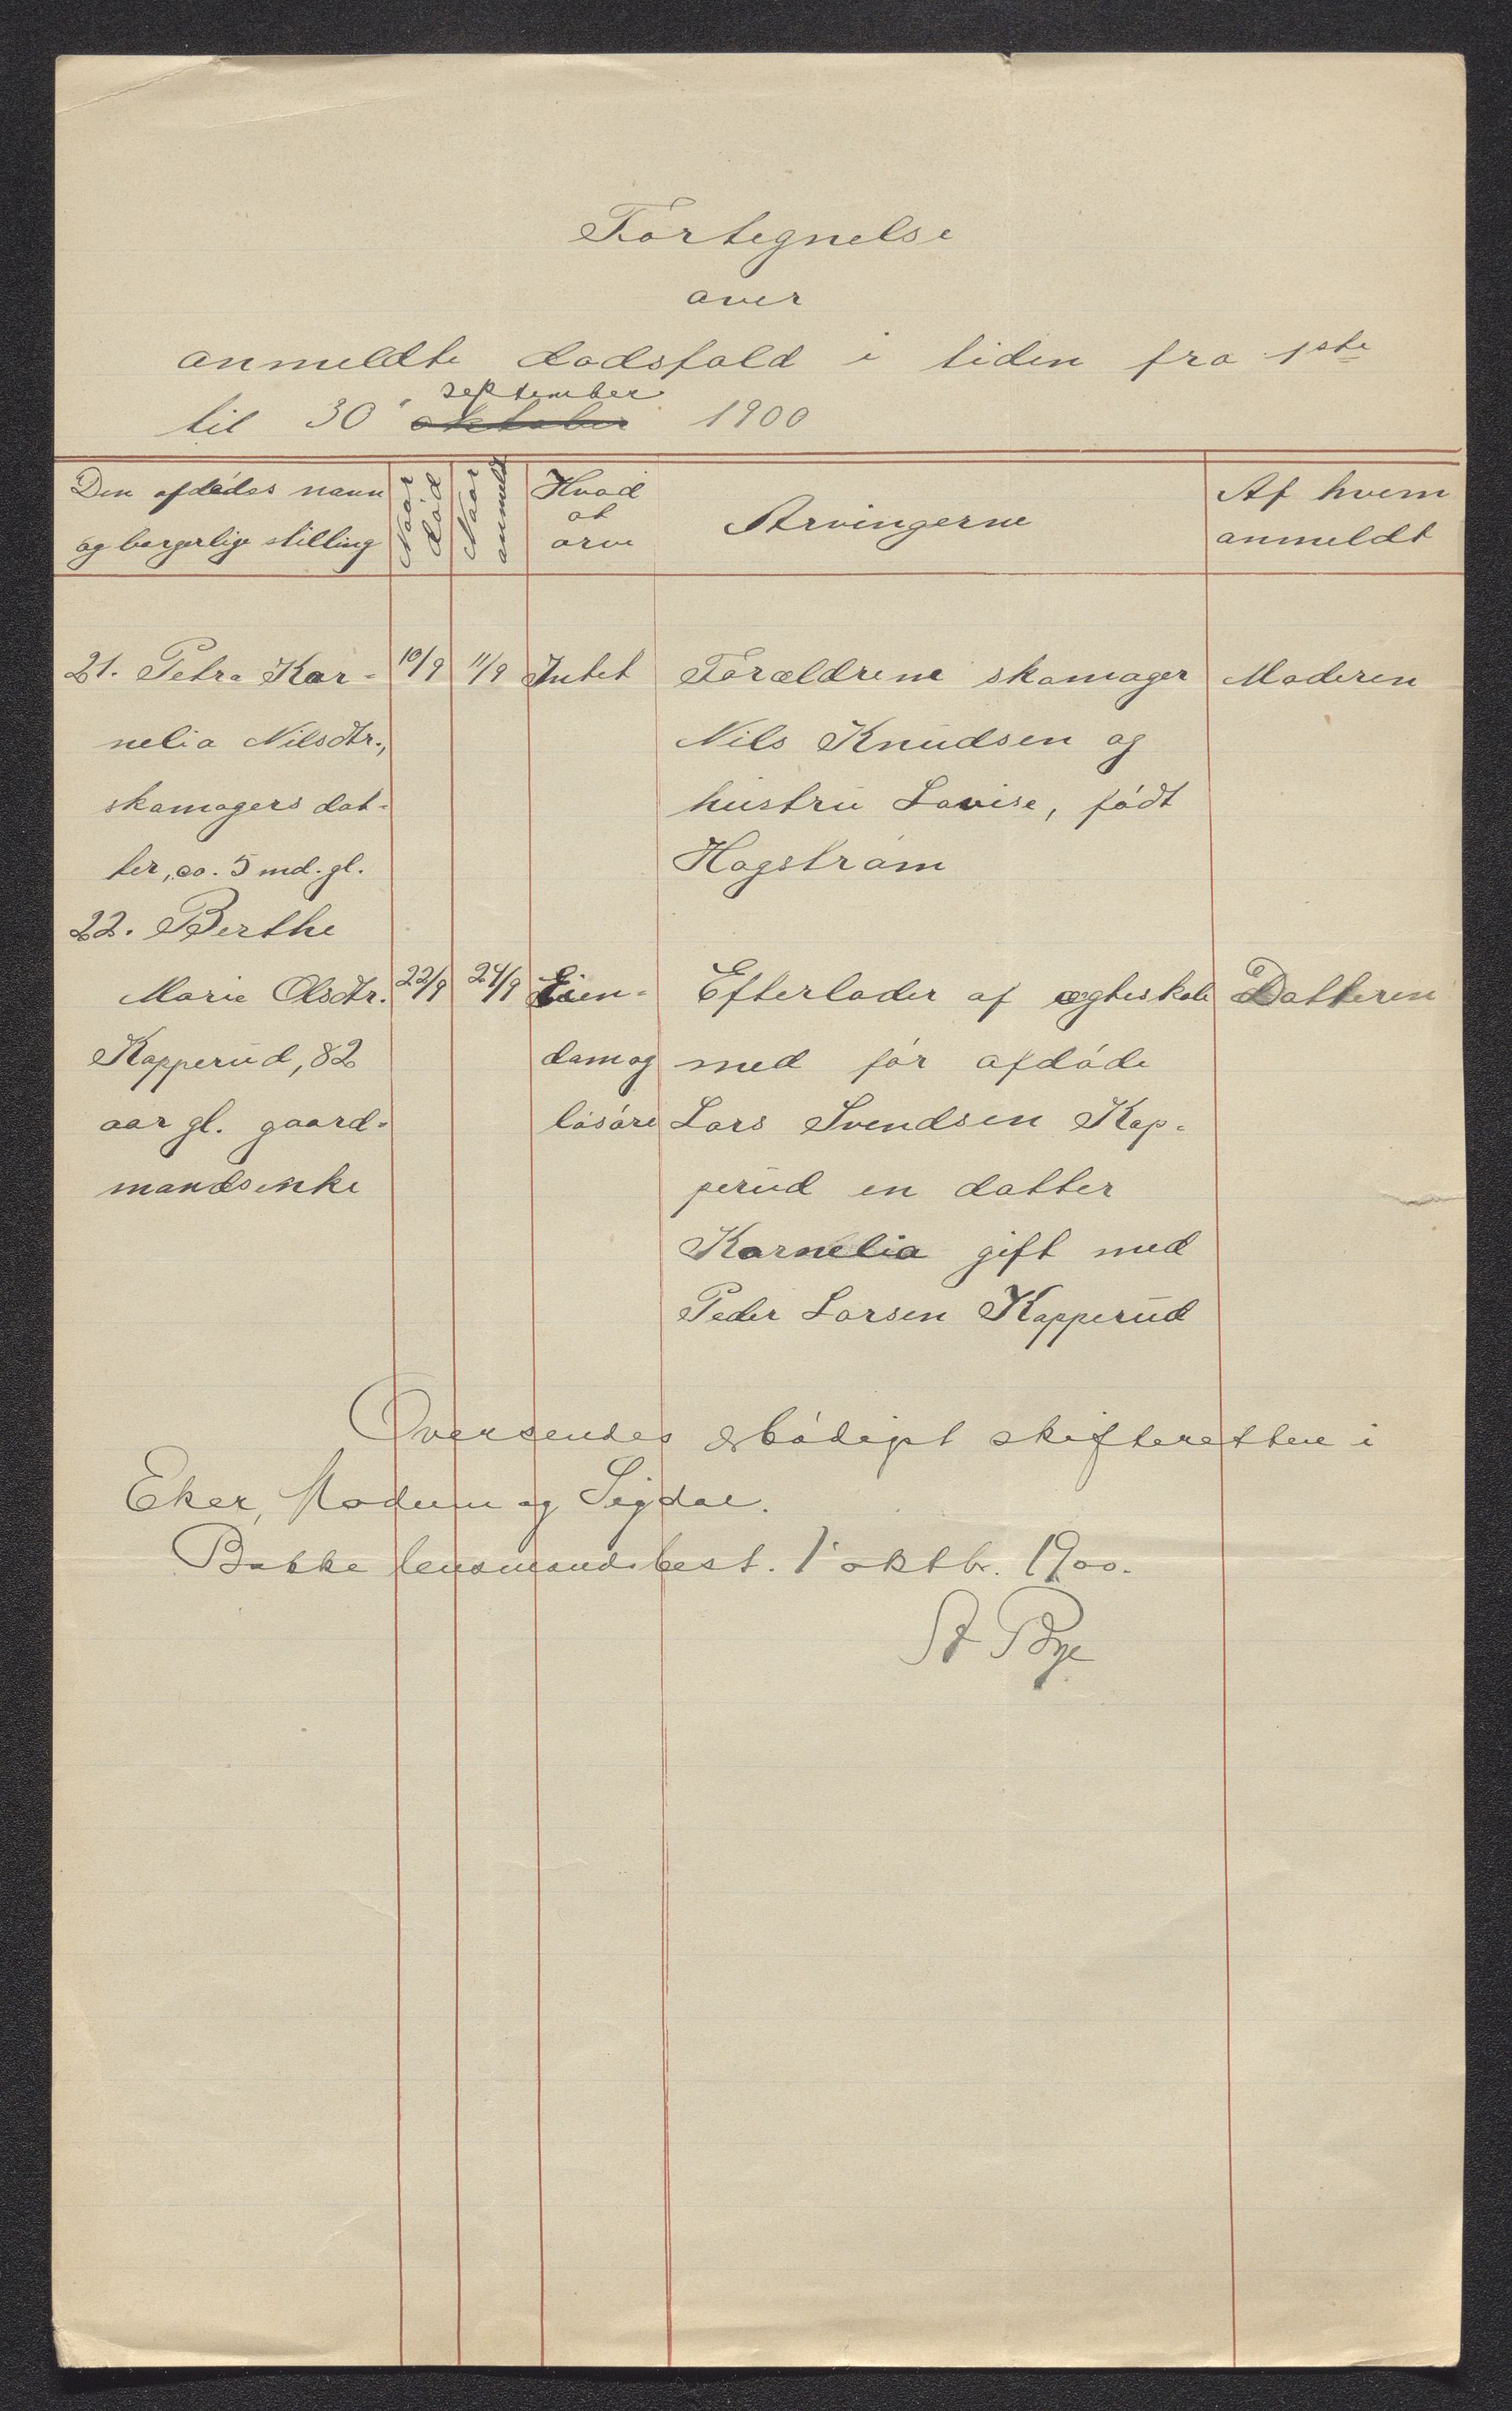 Fortegnelse
over
anmeldte dødsfald i tiden fra 1ste
til 30' oktober september 1900
Den afdødes navn og borgerlige stilling
Naar død
Naar anmeldt
Hvad at arve
Arvingerne
Af hvem anmeldt
21. Petra Kor- 10/9 11/9 Intet Forældrene skomager Moderen
nelia Nilsdtr., Nils Knudsen og
skomagers dat- hustru Lovise, født
ter, ca. 5 md. gl. Hagstrøm
22. Berthe
Marie Olsdtr. 22/9 24/9 Eien- Efterlader af ægteskab Datteren
Kopperud, 82 dom og med før afdøde
aar gl. gaard- løsøre Lars Svendsen Kop-
mandsenke perud en datter
Kornelia gift med
Peder Larsen Kopperud
Oversendes ærbødigst skifteretten i
Eker, Modum og Sigdal.
Bakke lensmandsbest. 1' oktbr. 1900.
St Bye